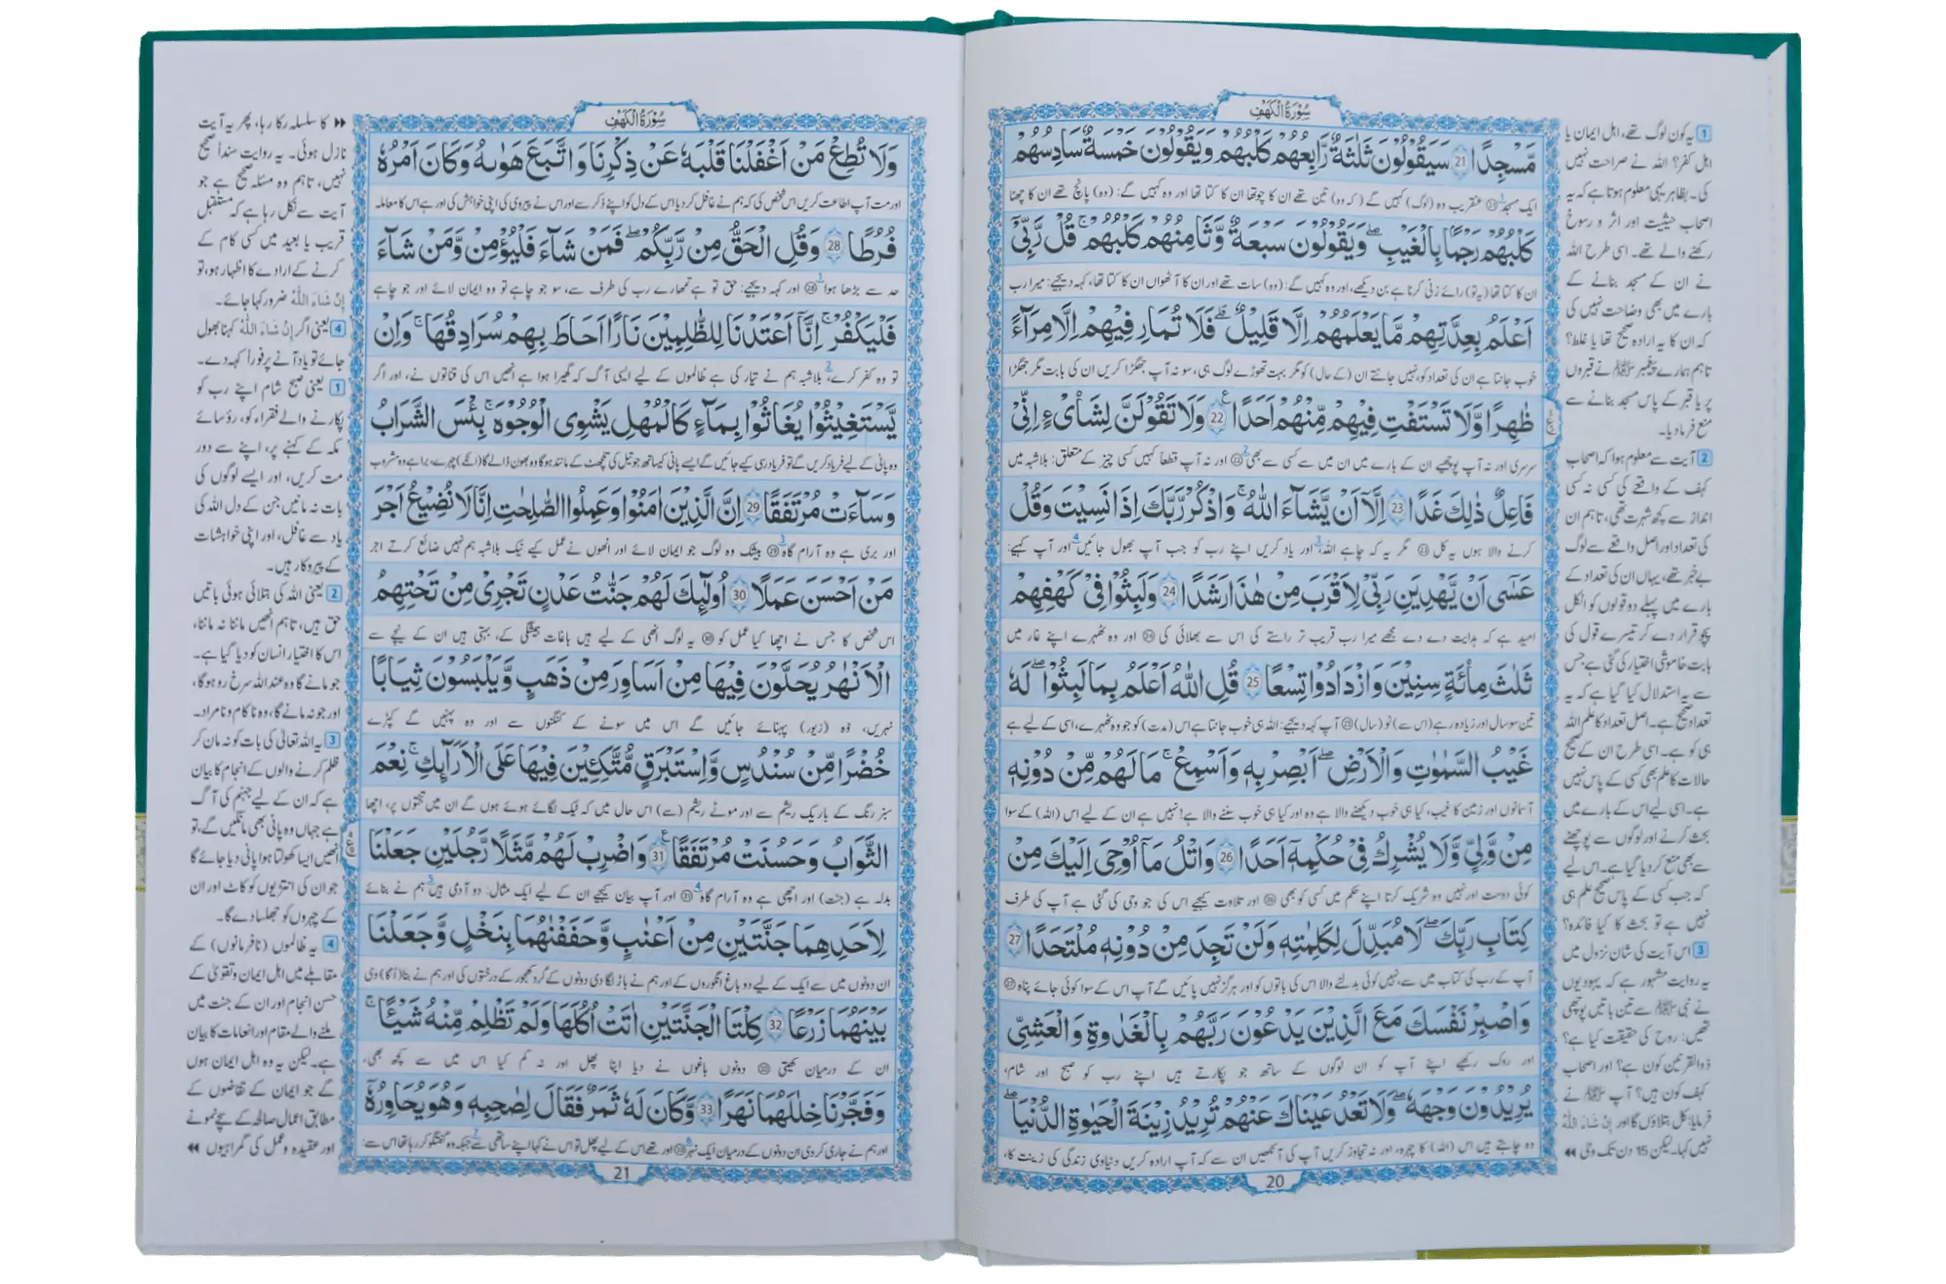 سُوْرَةُ الْكَهْفِ
مَّسْجِدًا 21 سَيَقُوْلُوْنَ ثَلٰثَةٌ رَّابِعُهُمْ كَلْبُهُمْ وَيَقُوْلُوْنَ خَمْسَةٌ سَادِسُهُمْ
ایک مسجد ㉑ عنقریب وہ (لوگ) کہیں گے (کہ وہ) تین تھے ان کا چوتھا ان کا کتا تھا اور وہ کہیں گے: (وہ) پانچ تھے ان کا چھٹا
كَلْبُهُمْ رَجْمًا بِالْغَيْبِ ۖ وَيَقُوْلُوْنَ سَبْعَةٌ وَّثَامِنُهُمْ كَلْبُهُمْ ۚ قُلْ رَّبِّيْ
ان کا کتا تھا (یہ تو) رائے زنی کرنا ہے بن دیکھے، اور وہ کہیں گے: (وہ) سات تھے اور ان کا آٹھواں ان کا کتا تھا، کہہ دیجیے: میرا رب
اَعْلَمُ بِعِدَّتِهِمْ مَّا يَعْلَمُهُمْ اِلَّا قَلِيْلٌ ۗ فَلَا تُمَارِ فِيْهِمْ اِلَّا مِرَآءً
خوب جانتا ہے ان کی تعداد کو، نہیں جانتے ان (کے حال) کو مگر بہت تھوڑے لوگ ہی، سو نہ آپ جھگڑا کریں ان کی بابت مگر جھگڑا
ظٰهِرًا وَّلَا تَسْتَفْتِ فِيْهِمْ مِّنْهُمْ اَحَدًا 22 وَلَا تَقُوْلَنَّ لِشَا۟یْءٍ اِنِّيْ
سرسری اور نہ آپ پوچھیے ان کے بارے میں ان میں سے کسی سے بھی ㉒ اور نہ آپ قطعاً کہیں کسی چیز کے متعلق: بلاشبہ میں
فَاعِلٌ ذٰلِكَ غَدًا 23 اِلَّآ اَنْ يَّشَآءَ اللّٰهُ ۚ وَاذْكُرْ رَّبَّكَ اِذَا نَسِيْتَ وَقُلْ
کرنے والا ہوں یہ کل ㉓ مگر یہ کہ چاہے اللہ، اور یاد کریں اپنے رب کو جب آپ بھول جائیں اور آپ کہیے:
عَسٰٓى اَنْ يَّهْدِيَنِ رَبِّيْ لِاَقْرَبَ مِنْ هٰذَا رَشَدًا 24 وَلَبِثُوْا فِيْ كَهْفِهِمْ
امید ہے کہ ہدایت دے دے مجھے میرا رب قریب تر راستے کی اس سے بھلائی کی ㉔ اور وہ ٹھہرے اپنے غار میں
ثَلٰثَ مِائَةٍ سِنِيْنَ وَازْدَادُوْا تِسْعًا 25 قُلِ اللّٰهُ اَعْلَمُ بِمَا لَبِثُوْا ۚ لَهٗ
تین سو سال اور زیادہ رہے (اس سے) نو (سال) ㉕ آپ کہہ دیجیے: اللہ ہی خوب جانتا ہے اس (مدت) کو جو وہ ٹھہرے، اسی کے لیے ہے
غَيْبُ السَّمٰوٰتِ وَالْاَرْضِ ۖ اَبْصِرْ بِهٖ وَاَسْمِعْ ۚ مَا لَهُمْ مِّنْ دُوْنِهٖ
آسمانوں اور زمین کا غیب، کیا ہی خوب دیکھنے والا ہے وہ اور کیا ہی خوب سننے والا ہے! نہیں ہے ان کے لیے اس (اللہ) کے سوا
مِنْ وَّلِيٍّ وَّلَا يُشْرِكُ فِيْ حُكْمِهٖٓ اَحَدًا 26 وَاتْلُ مَآ اُوْحِيَ اِلَيْكَ مِنْ
کوئی دوست اور نہیں وہ شریک کرتا اپنے حکم میں کسی کو بھی ㉖ اور تلاوت کیجیے اس کی جو وحی کی گئی ہے آپ کی طرف
كِتَابِ رَبِّكَ ۖ لَا مُبَدِّلَ لِكَلِمٰتِهٖ وَلَنْ تَجِدَ مِنْ دُوْنِهٖ مُلْتَحَدًا 27
آپ کے رب کی کتاب میں سے، نہیں کوئی بدلنے والا اس کی باتوں کو اور ہرگز نہیں پائیں گے آپ اس کے سوا کوئی جائے پناہ ㉗
وَاصْبِرْ نَفْسَكَ مَعَ الَّذِيْنَ يَدْعُوْنَ رَبَّهُمْ بِالْغَدٰوةِ وَالْعَشِيِّ
اور روک رکھیے اپنے آپ کو ان لوگوں کے ساتھ جو پکارتے ہیں اپنے رب کو صبح اور شام،
يُرِيْدُوْنَ وَجْهَهٗ ۖ وَلَا تَعْدُ عَيْنَاكَ عَنْهُمْ تُرِيْدُ زِيْنَةَ الْحَيٰوةِ الدُّنْيَا ۖ
وہ چاہتے ہیں اس (اللہ) کا چہرہ، اور نہ تجاوز کریں آپ کی آنکھیں ان سے کہ آپ ارادہ کریں دنیاوی زندگی کی زینت کا،
20
1 یہ کون لوگ تھے، اہل ایمان یا
اہل کفر؟ اللہ نے صراحت نہیں
کی۔ بظاہر یہی معلوم ہوتا ہے کہ یہ
اصحاب حیثیت اور اثر و رسوخ
رکھنے والے تھے۔ اسی طرح اللہ
نے ان کے مسجد بنانے کے
بارے میں بھی وضاحت نہیں کی
کہ ان کا یہ ارادہ صحیح تھا یا غلط؟
تاہم ہمارے پیغمبر ﷺ نے قبروں
پر یا قبر کے پاس مسجد بنانے سے
منع فرما دیا۔
2 آیت سے معلوم ہوا کہ اصحاب
کہف کے واقعے کی کسی نہ کسی
انداز سے کچھ شہرت تھی، تاہم ان
کی تعداد اور اصل واقعے سے لوگ
بے خبر تھے، یہاں ان کی تعداد کے
بارے میں پہلے دو قولوں کو اٹکل
پچو قرار دے کر تیسرے قول کی
بابت خاموشی اختیار کی گئی ہے جس
سے یہ استدلال کیا گیا ہے کہ یہ
تعداد صحیح ہے۔ اصل تعداد کا علم اللہ
ہی کو ہے۔ اسی طرح ان کے صحیح
حالات کا علم بھی کسی کے پاس نہیں
ہے۔ اسی لیے اس کے بارے میں
بحث کرنے اور لوگوں سے پوچھنے
سے بھی منع کر دیا گیا ہے۔ اس لیے
کہ جب کسی کے پاس صحیح علم ہی
نہیں ہے تو بحث کا کیا فائدہ؟
3 اس آیت کی شان نزول میں
یہ روایت مشہور ہے کہ یہودیوں
نے نبی ﷺ سے تین باتیں پوچھی
تھیں: روح کی حقیقت کیا ہے؟
ذوالقرنین کون ہے؟ اور اصحاب
کہف کون ہیں؟ آپ ﷺ نے
فرمایا: کل بتلاؤں گا اور اِنْ شَاءَ اللّٰهُ
نہیں کہا۔ لیکن 15 دن تک وحی ◀◀
سُوْرَةُ الْكَهْفِ
وَلَا تُطِعْ مَنْ اَغْفَلْنَا قَلْبَهٗ عَنْ ذِكْرِنَا وَاتَّبَعَ هَوٰىهُ وَكَانَ اَمْرُهٗ
اور مت آپ اطاعت کریں اس شخص کی کہ ہم نے غافل کر دیا اس کے دل کو اپنے ذکر سے اور اس نے پیروی کی اپنی خواہش کی اور ہے اس کا معاملہ
فُرُطًا 28 وَقُلِ الْحَقُّ مِنْ رَّبِّكُمْ ۖ فَمَنْ شَآءَ فَلْيُؤْمِنْ وَّمَنْ شَآءَ
حد سے بڑھا ہوا ㉘ اور کہہ دیجیے: حق تو ہے تمھارے رب کی طرف سے، سو جو چاہے تو وہ ایمان لائے اور جو چاہے
فَلْيَكْفُرْ ۚ اِنَّآ اَعْتَدْنَا لِلظّٰلِمِيْنَ نَارًا اَحَاطَ بِهِمْ سُرَادِقُهَا ۚ وَاِنْ
تو وہ کفر کرے، بلاشبہ ہم نے تیار کی ہے ظالموں کے لیے ایسی آگ کہ گھیرا ہوا ہے انھیں اس کی قناتوں نے، اور اگر
يَّسْتَغِيْثُوْا يُغَاثُوْا بِمَآءٍ كَالْمُهْلِ يَشْوِي الْوُجُوْهَ ۚ بِئْسَ الشَّرَابُ
وہ پانی کے لیے فریاد کریں گے تو فریاد رسی کیے جائیں گے ایسے پانی کیساتھ جو تیل کی تلچھٹ کے مانند ہوگا وہ بھون ڈالے گا (انکے) چہرے، برا ہے وہ مشروب
وَسَآءَتْ مُرْتَفَقًا 29 اِنَّ الَّذِيْنَ اٰمَنُوْا وَعَمِلُوا الصّٰلِحٰتِ اِنَّا لَا نُضِيْعُ اَجْرَ
اور بری ہے وہ آرام گاہ ㉙ بیشک وہ لوگ جو ایمان لائے اور انھوں نے عمل کیے نیک بلاشبہ ہم نہیں ضائع کرتے اجر
مَنْ اَحْسَنَ عَمَلًا 30 اُولٰٓئِكَ لَهُمْ جَنّٰتُ عَدْنٍ تَجْرِيْ مِنْ تَحْتِهِمُ
اس شخص کا جس نے اچھا کیا عمل کو ㉚ یہ لوگ انھی کے لیے ہیں باغات ہمیشگی کے، بہتی ہیں ان کے نیچے سے
الْاَنْهٰرُ يُحَلَّوْنَ فِيْهَا مِنْ اَسَاوِرَ مِنْ ذَهَبٍ وَّيَلْبَسُوْنَ ثِيَابًا
نہریں، وہ (زیور) پہنائے جائیں گے اس میں سونے کے کنگنوں سے اور وہ پہنیں گے کپڑے
خُضْرًا مِّنْ سُنْدُسٍ وَّاِسْتَبْرَقٍ مُّتَّكِئِيْنَ فِيْهَا عَلَى الْاَرَآئِكِ ۚ نِعْمَ
سبز رنگ کے باریک ریشم سے اور موٹے ریشم (سے) اس حال میں کہ ٹیک لگائے ہوئے ہوں گے ان میں تختوں پر، اچھا
الثَّوَابُ وَحَسُنَتْ مُرْتَفَقًا 31 وَاضْرِبْ لَهُمْ مَّثَلًا رَّجُلَيْنِ جَعَلْنَا
بدلہ ہے (جنت) اور اچھی ہے وہ آرام گاہ ㉛ اور آپ بیان کیجیے ان کے لیے ایک مثال: دو آدمی ہیں ہم نے بنائے
لِاَحَدِهِمَا جَنَّتَيْنِ مِنْ اَعْنٰبٍ وَّحَفَفْنٰهُمَا بِنَخْلٍ وَّجَعَلْنَا
ان دونوں میں سے ایک کے لیے دو باغ انگوروں کے اور ہم نے باڑ لگا دی دونوں کے گرد کھجور کے درختوں کی اور ہم نے بنا (اُگا) دی
بَيْنَهُمَا زَرْعًا 32 كِلْتَا الْجَنَّتَيْنِ اٰتَتْ اُكُلَهَا وَلَمْ تَظْلِمْ مِّنْهُ شَيْئًا ۙ
ان کے درمیان کھیتی ㉜ دونوں باغوں نے دیا اپنا پھل اور نہ کم کیا اس میں سے کچھ بھی،
وَّفَجَّرْنَا خِلٰلَهُمَا نَهَرًا 33 وَّكَانَ لَهٗ ثَمَرٌ فَقَالَ لِصَاحِبِهٖ وَهُوَ يُحَاوِرُهٗٓ
اور ہم نے جاری کر دی ان دونوں کے درمیان ایک نہر ㉝ اور تھے اس کے لیے پھل تو اس نے کہا اپنے ساتھی سے جبکہ وہ گفتگو کر رہا تھا اس سے:
21
◀◀ کا سلسلہ رکا رہا، پھر یہ آیت
نازل ہوئی۔ یہ روایت سنداً صحیح
نہیں، تاہم وہ مسئلہ صحیح ہے جو
آیت سے نکل رہا ہے کہ مستقبل
قریب یا بعید میں کسی کام کے
کرنے کے ارادے کا اظہار ہو، تو
اِنْ شَاءَ اللّٰهُ ضرور کہا جائے۔
4 یعنی اگر اِنْ شَاءَ اللّٰهُ کہنا بھول
جائے تو یاد آنے پر فوراً کہہ دے۔
1 یعنی صبح شام اپنے رب کو
پکارنے والے فقراء کو، رؤسائے
مکہ کے کہنے پر، اپنے سے دور
مت کریں، اور ایسے لوگوں کی
بات نہ مانیں جن کے دل اللہ کی
یاد سے غافل، اور اپنی خواہشات
کے پیروکار ہیں۔
2 یعنی اللہ کی بتلائی ہوئی باتیں
حق ہیں، تاہم انھیں ماننا نہ ماننا،
اس کا اختیار انسان کو دیا گیا ہے۔
جو مانے گا وہ عند اللہ سرخ رو ہوگا،
اور جو نہ مانے گا، وہ ناکام و نامراد۔
3 یہ اللہ تعالیٰ کی بات کو نہ مان کر
ظلم کرنے والوں کے انجام کا بیان
ہے کہ ان کے لیے جہنم کی آگ
ہے جہاں وہ پانی بھی مانگیں گے، تو
انھیں ایسا کھولتا ہوا پانی دیا جائے گا
جو ان کی انتڑیوں کو کاٹ اور ان
کے چہروں کو جھلسا دے گا۔
4 یہ ظالموں (نافرمانوں) کے
مقابلے میں اہل ایمان و تقویٰ کے
حسن انجام اور ان کے جنت میں
ملنے والے مقام اور انعامات کا بیان
ہے۔ لیکن یہ وہ اہل ایمان ہوں
گے جو ایمان کے تقاضوں کے
مطابق اعمال صالحہ کے سچے نمونے
اور عقیدہ و عمل کی گمراہیوں ◀◀